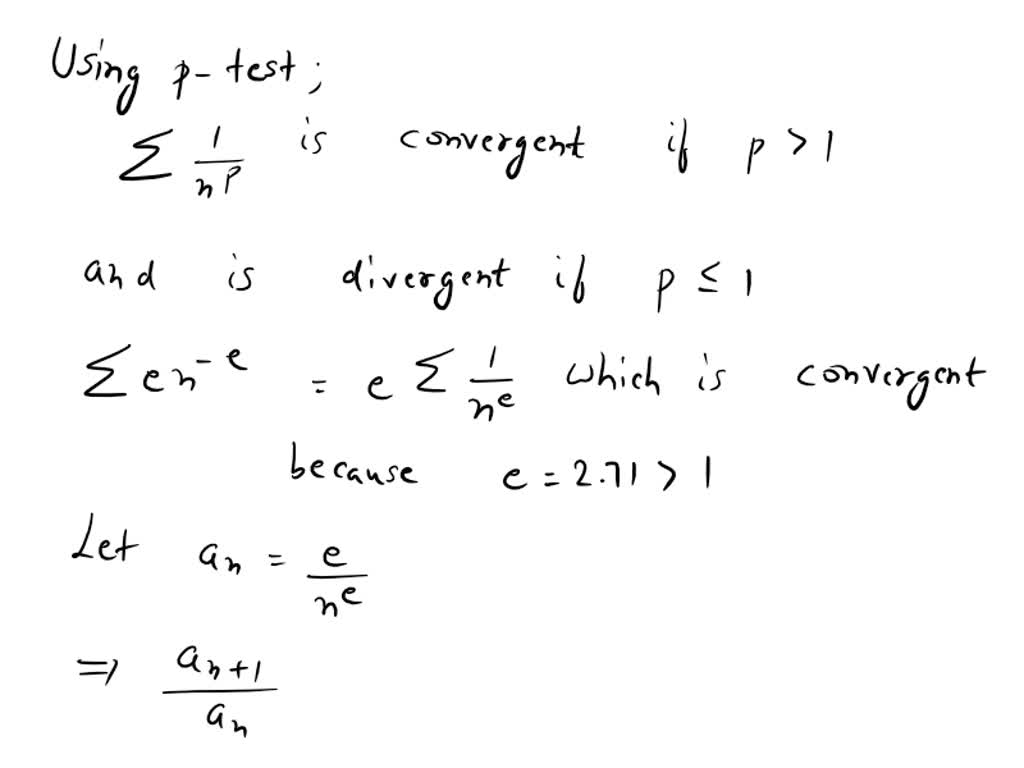 Using p-test;
∑ 1/n^p is convergent if p > 1
and is divergent if p ≤ 1
∑ e n^-e = e ∑ 1/n^e which is convergent
because e = 2.71 > 1
Let a_n = e/n^e
⇒ a_n+1/a_n